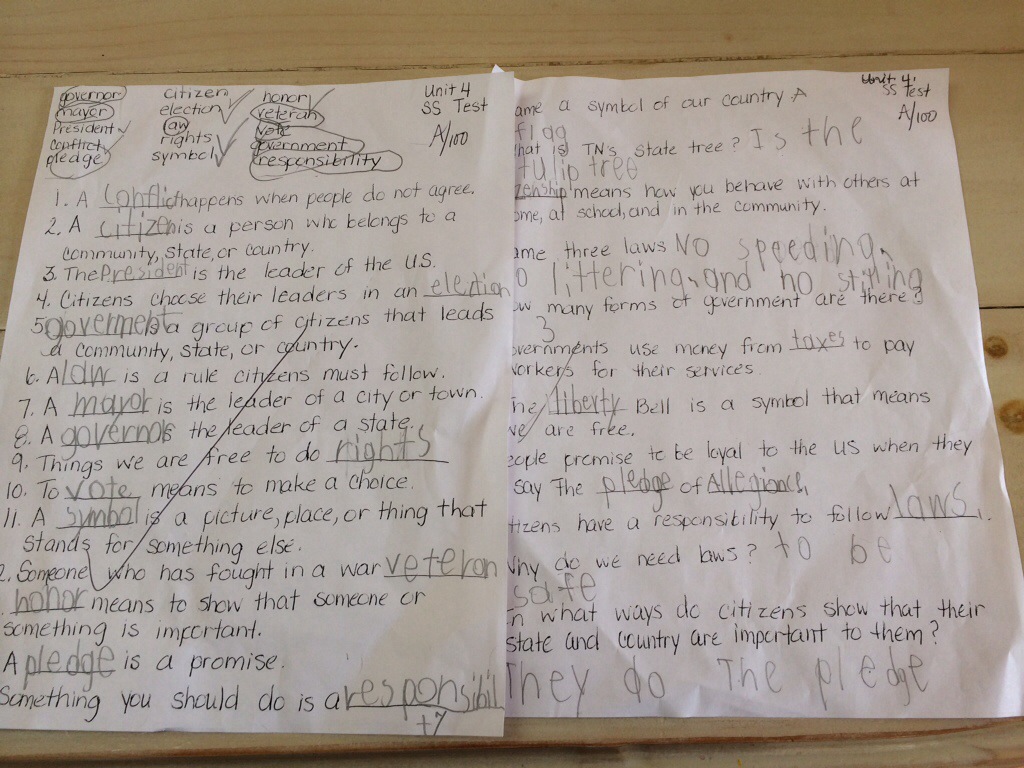 governor
mayor
President
conflict
pledge
citizen
election
law
rights
symbol
honor
veteran
vote
government
responsibility
Unit 4
SS Test
A/100
1. A Conflict happens when people do not agree.
2. A citizen is a person who belongs to a
community, state, or country.
3. The President is the leader of the U.S.
4. Citizens choose their leaders in an election
5. goverment is a group of citizens that leads
a community, state, or country.
6. A law is a rule citizens must follow.
7. A mayor is the leader of a city or town.
8. A governor is the leader of a state.
9. Things we are free to do rights
10. To vote means to make a choice.
11. A symbol is a picture, place, or thing that
stands for something else.
2. Someone who has fought in a war veteran
honor means to show that someone or
something is important.
A pledge is a promise.
Something you should do is a responsibil
+7
Unit 4
SS Test
A/100
ame a symbol of our country A
flag
hat is TN's state tree? Is the
tulip tree
zenship means how you behave with others at
ome, at school, and in the community.
ame three laws No speeding,
o littering, and no stilling
ow many forms of government are there?
3
overnments use money from taxes to pay
workers for their services.
The liberty Bell is a symbol that means
we are free.
eople promise to be loyal to the US when they
say The pledge of Allegiance.
tizens have a responsibility to follow laws.
Why do we need laws? to be
safe
n what ways do citizens show that their
state and country are important to them?
They do The pledge